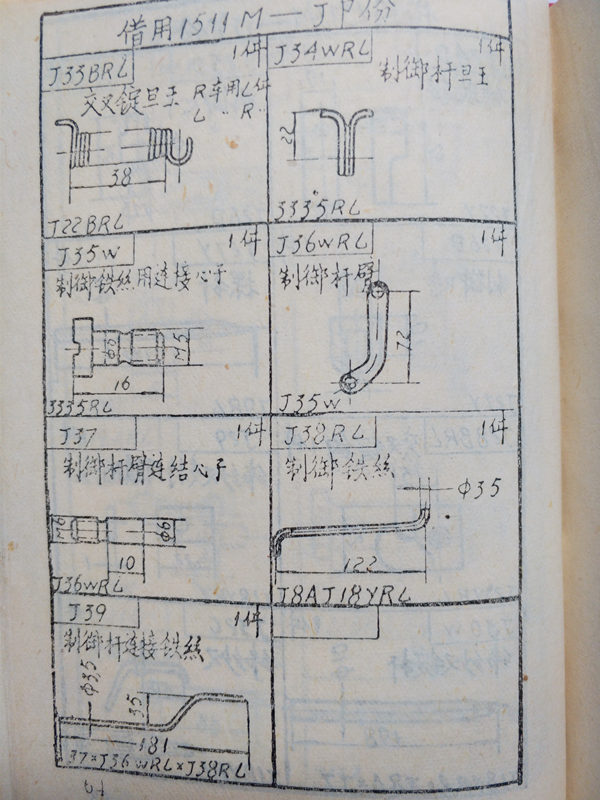 借用1511M—J部份
J33BRL
1件
交叉锭旦王
R车用L件
L 〃 R〃
38
J22BRL
J34WRL
1件
制御杆旦王
22
3335RL
J35W
1件
制御铁絲用连接心子
φ6
M5
16
3335RL
J36WRL
1件
制御杆臂
72
J35W
J37
1件
制御杆臂连结心子
M6
φ6
10
J36WRL
J38RL
1件
制御铁絲
φ3.5
122
J8AJ18YRL
J39
1件
制御杆连接铁絲
φ3.5
35
181
37×J36WRL×J38RL